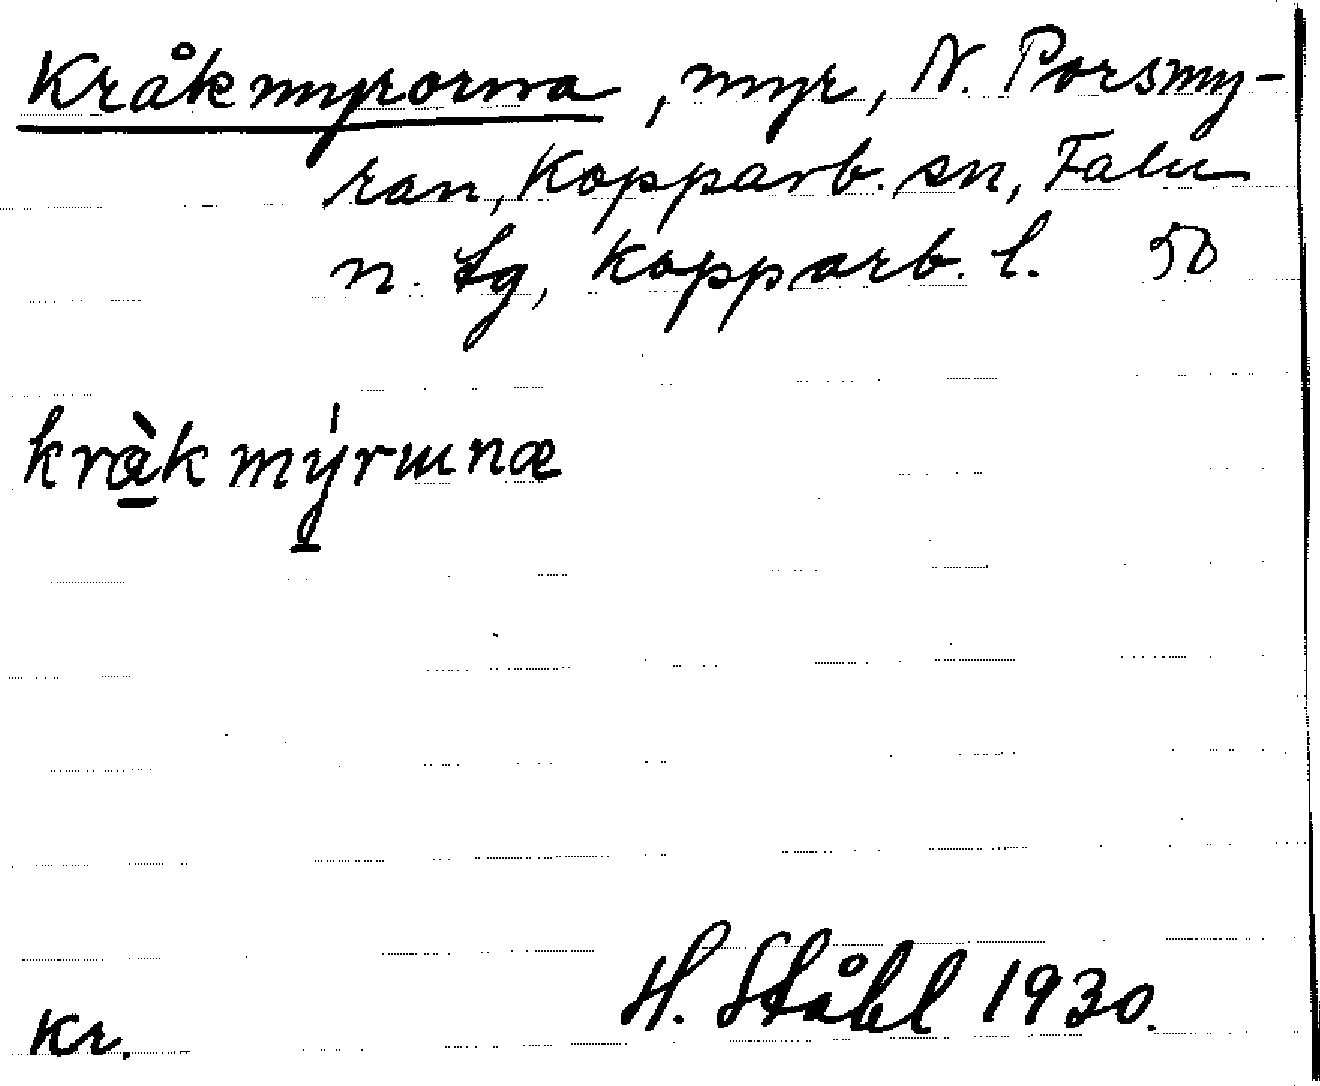 Kråkmyrorna, myr, N. Porsmy-
ran, Kopparb. sn, Falu
n. tg, Kopparb. l. 50
kràk mýrɯnæ
H. Ståhl 1930.
Kr.